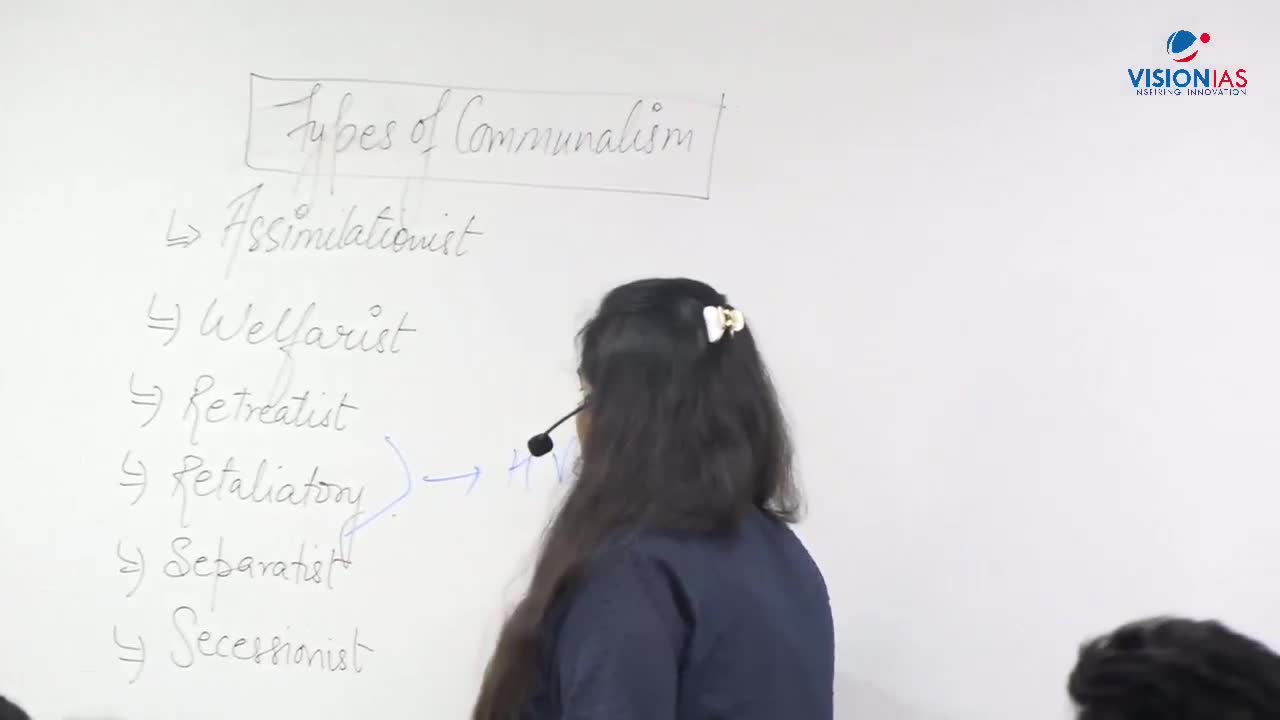 VISIONIAS
INSPIRING INNOVATION
Types of Communalism
↳ Assimilationist
↳ Welfarist
↳ Retreatist
↳ Retaliatory → H V
↳ Separatist
↳ Secessionist